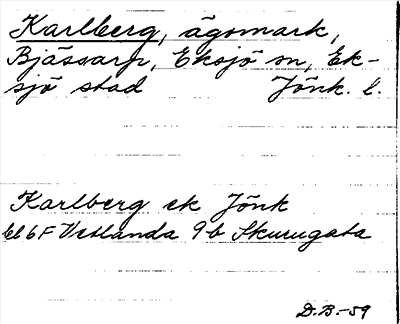 Karlberg, ägomark,
Bjässarp, Eksjö sn, Ek-
sjö stad Jönk. l.
Karlberg ek Jönk
bl 6F Vetlanda 9b Skurugata
D.B.-59